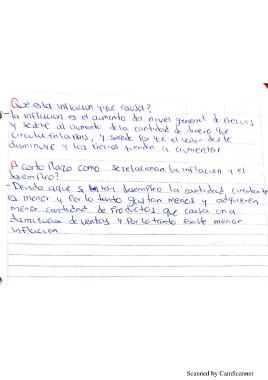 Que es la inflacion y que causa?
- la inflacion es el aumento del nivel general de precios
y se debe al aumento de la cantidad de dinero que
circula en la Pais, y sucede Por que el valor de este
disminuye y los Precios tienden a aumentar
A corto Plazo como se relacionan la inflacion y el
desempleo?
- Devido a que si hay desempleo la cantidad circulante
es menor y Por lo tanto gastan menos y adquieren
menor cantidad de Productos que causa una
disminucion de ventas y Por lo tanto existe menor
Inflacion
Scanned by CamScanner